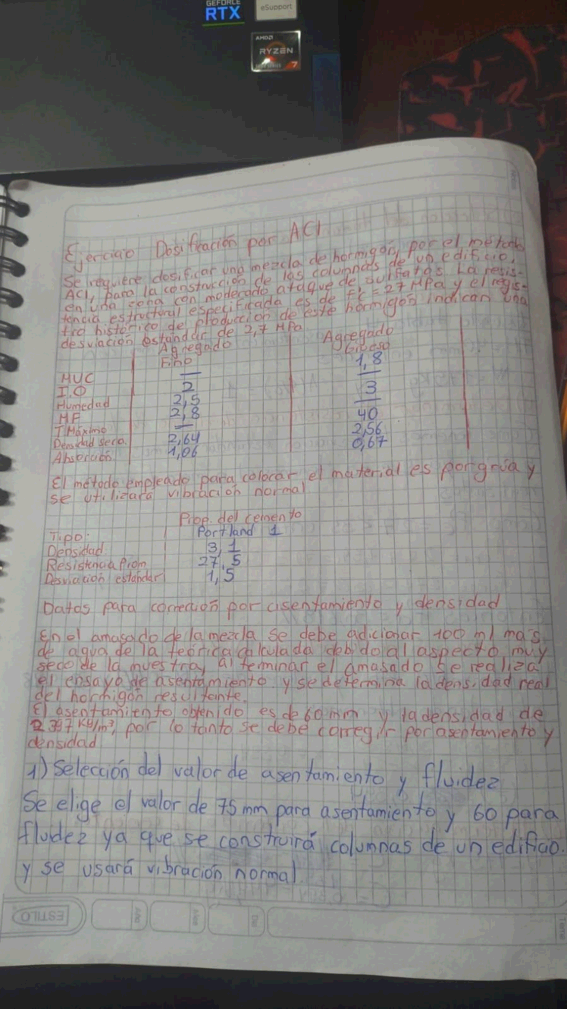 GEFORCE
RTX
eSupport
AMD
RYZEN
7
Ejercicio Dosificación por ACI
Se requiere dosificar una mezcla de hormigón, por el método
ACI, para la construcción de las columnas de un edificio,
en una zona con moderado ataque de sulfatos. La resis-
tencia estructural especificada es de f'c = 27 MPa y el regis-
tro histórico de producción de este hormigón indican una
desviación estándar de 2,7 MPa
Agregado Fino | Agregado Grueso
MUC — 1,8
I.O 2 3
Humedad 2,5 —
MF 2,8
T Máximo — 40
Densidad seca 2,64 2,56
Absorción 1,06 0,67
El método empleado para colocar el material es por grúa y
se utilizará vibración normal
Prop. del cemento
Tipo: Portland 1
Densidad 3,1
Resistencia Prom 27,5
Desviación estándar 1,5
Datos para corrección por asentamiento y densidad
En el amasado de la mezcla se debe adicionar 100 ml mas
de agua de la teórica calculada debido al aspecto muy
seco de la muestra, al terminar el amasado se realiza
el ensayo de asentamiento y se determina la densidad real
del hormigón resultante.
El asentamiento obtenido es de 60 mm y la densidad de
kg/m³, por lo tanto se debe corregir por asentamiento y
densidad
1) Selección del valor de asentamiento y fluidez
Se elige el valor de 75 mm para asentamiento y 60 para
fluidez ya que se construirá columnas de un edificio
y se usará vibración normal.
ESTILO